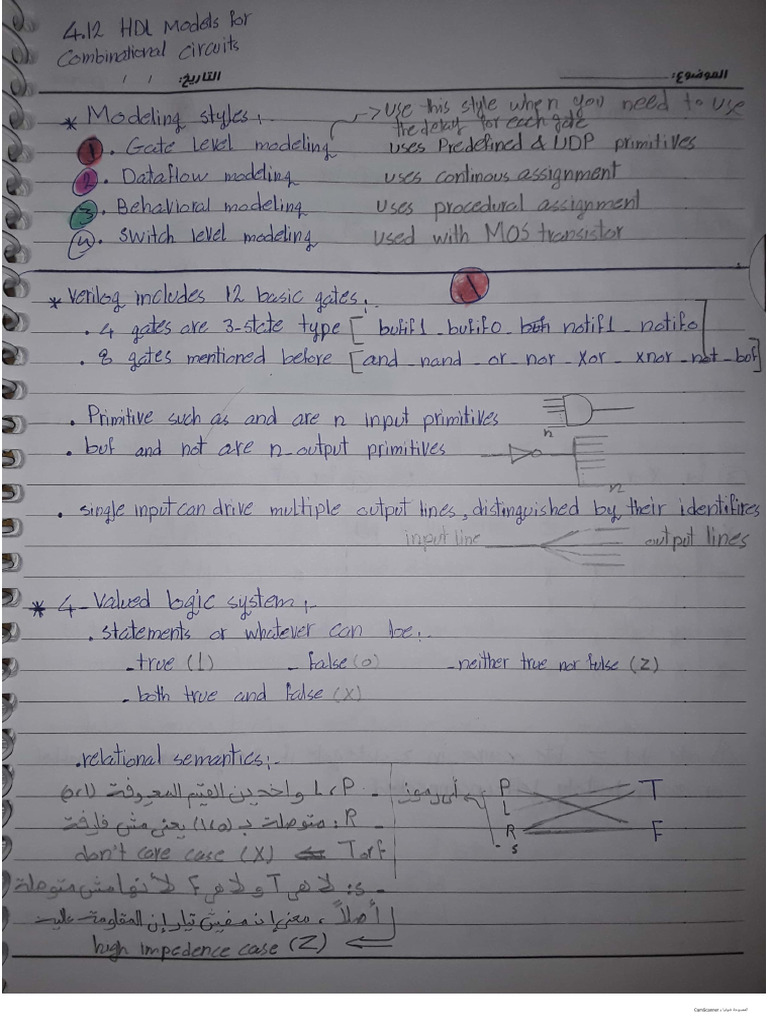 4.12 HDL Models for
Combinational Circuits
التاريخ: / /
الموضوع:
* Modeling styles:-
-> Use this style when you need to use
the delay for each gate
1. Gate Level modeling uses Predefined & UDP primitives
2. Dataflow modeling uses continous assignment
3. Behavioral modeling uses procedural assignment
4. Switch level modeling used with MOS transistor
1
* Verilog includes 12 basic gates:-
. 4 gates are 3-state type [ bufif1 - bufif0 - notif1 - notif0 ]
. 8 gates mentioned before [and - nand - or - nor - xor - xnor - not - buf]
. Primitive such as and are n input primitives
n
. buf and not are n-output primitives
n
. single input can drive multiple output lines, distinguished by their identifires
input line output lines
* 4-Valued logic system:-
. statements or whatever can be:-
- true (1) - false (0) - neither true nor false (Z)
- both true and false (X)
. relational semantics:-
- L, P واحد من القيم المعروفة (0,1)
أي رموز
P T
L
R F
S
- R: متوصلة بـ (1,0) يعني مش فارقة
T or F <= don't care case (X)
- S: لا هي T و لا هي F لأنها مش متوصلة
أصلاً، معنى إنه مفيش تيار إن المقاومة عليه
high impedence case (Z)
CamScanner